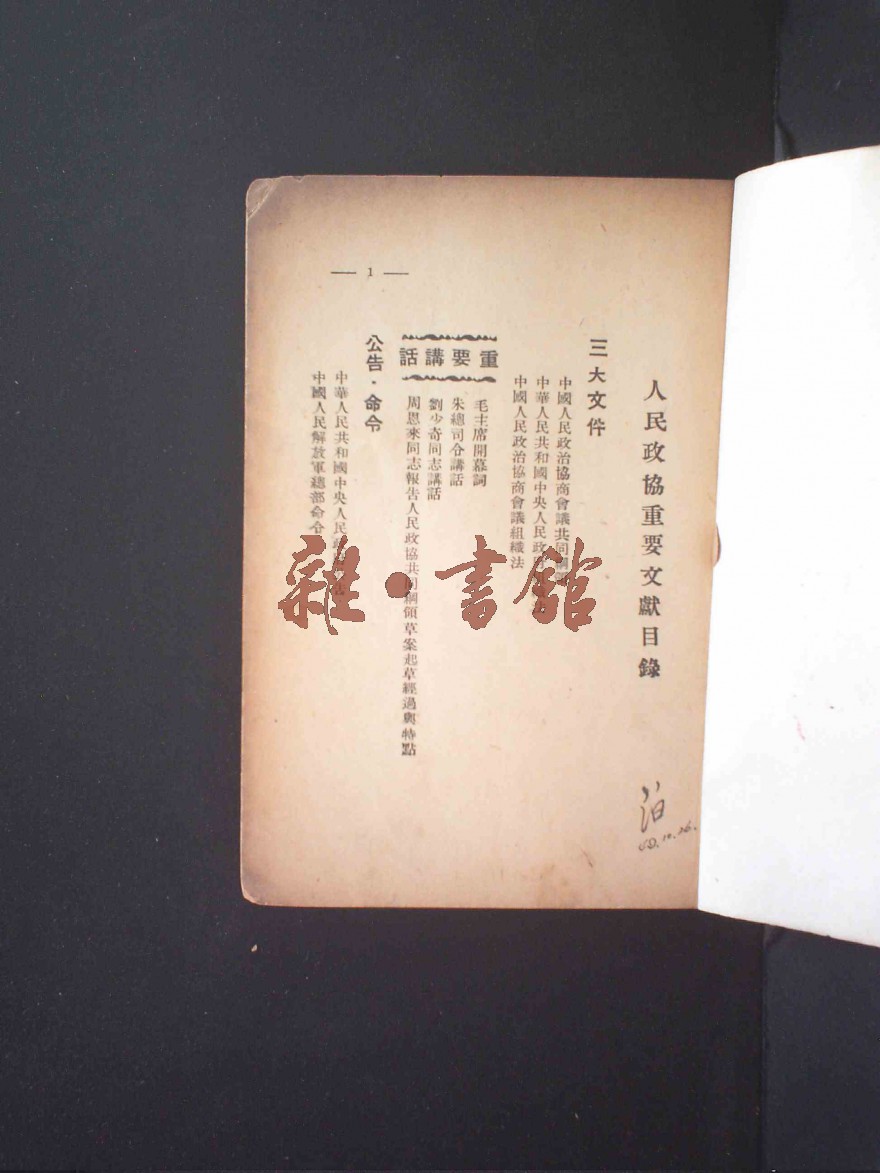 人民政協重要文獻目錄
三大文件
中國人民政治協商會議共同綱
中華人民共和國中央人民政
中國人民政治協商會議組織法
重要講話
毛主席開幕詞
朱總司令講話
劉少奇同志講話
周恩來同志報告人民政協共同綱領草案起草經過與特點
公告·命令
中華人民共和國中央人民政
中國人民解放軍總部命令
— 1 —
雜·書館